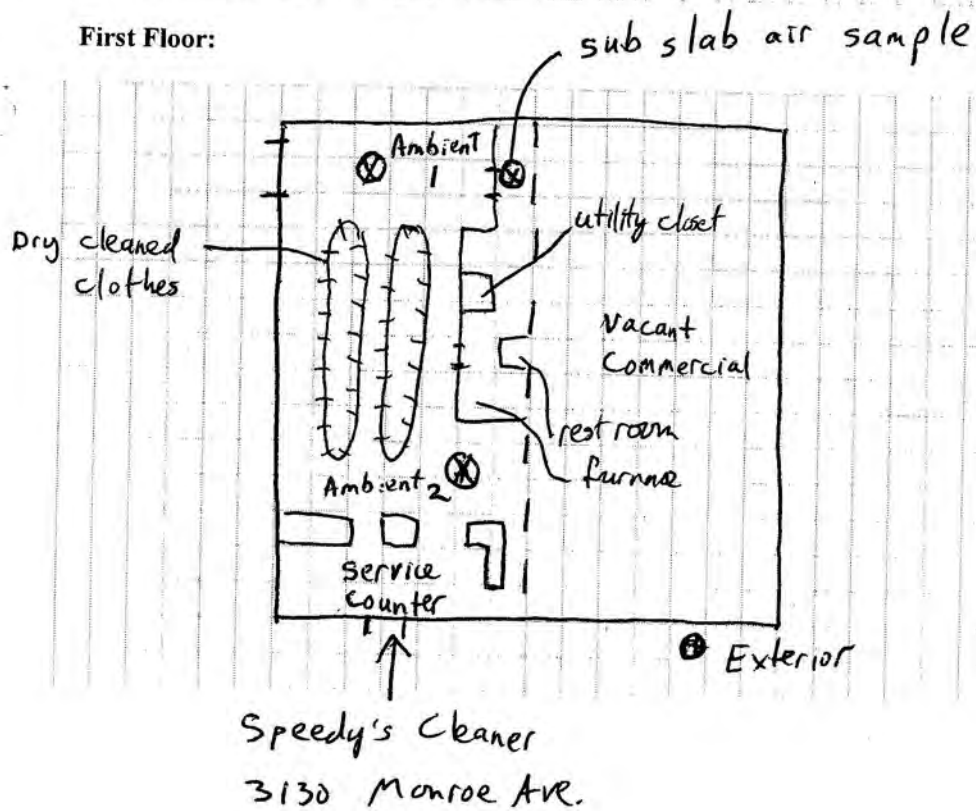 First Floor:
sub slab air sample
Ambient
1
utility closet
Dry cleaned
clothes
Vacant
Commercial
rest room
furnace
Ambient 2
Service
Counter
Exterior
Speedy's Cleaner
3130 Monroe Ave.